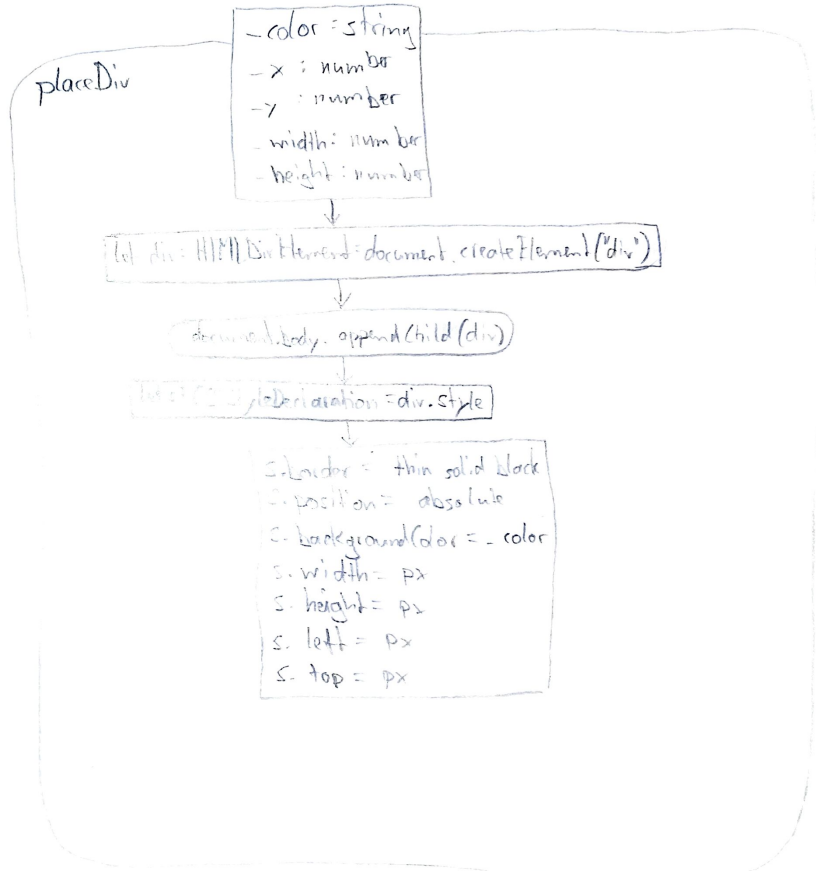 _color : string
placeDiv
_x : number
_y : number
_width : number
_height : number
let div : HTMLDivElement = document.createElement("div")
document.body.appendChild(div)
StyleDeclaration = div.style
s.border = thin solid black
s.position = absolute
s.backgroundColor = _color
s.width = px
s.height = px
s.left = px
s.top = px